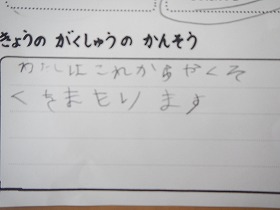 きょうの がくしゅうの かんそう
わたしはこれからやくそ
くをまもります